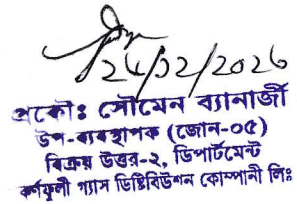 24/12/2026
প্রকৌঃ সৌমেন ব্যানার্জী
উপ-ব্যবস্থাপক (জোন-০৫)
বিক্রয় উত্তর-২, ডিপার্টমেন্ট
কর্ণফুলী গ্যাস ডিষ্ট্রিবিউশন কোম্পানী লিঃ